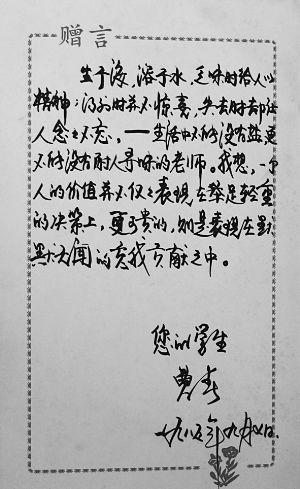 赠言
生于海,溶于水,乏味时给人以
精神;得到时并不惊喜,失去时却让
人念念不忘,——生活中不能没有盐更
不能没有耐人寻味的老师。我想,一个
人的价值并不仅仅表现在举足轻重
的决策上,更可贵的,则是表现在默
默无闻的忘我贡献之中。
您的学生
一九八五年九月